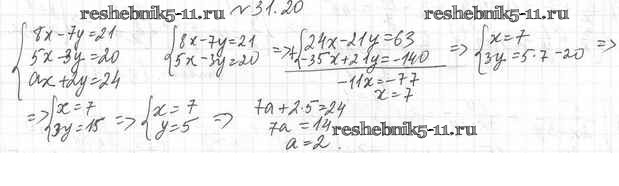 №31.20
reshebnik5-11.ru
reshebnik5-11.ru
{8x-7y=21
5x-3y=20
ax+2y=24
{8x-7y=21
5x-3y=20
=> +{24x-21y=63
-35x+21y=-140
-11x=-77
x=7
=> {x=7
3y=5·7-20 =>
=> {x=7
3y=15
=> {x=7
y=5 =>
7a+2·5=24
7a=14
a=2.
reshebnik5-11.ru